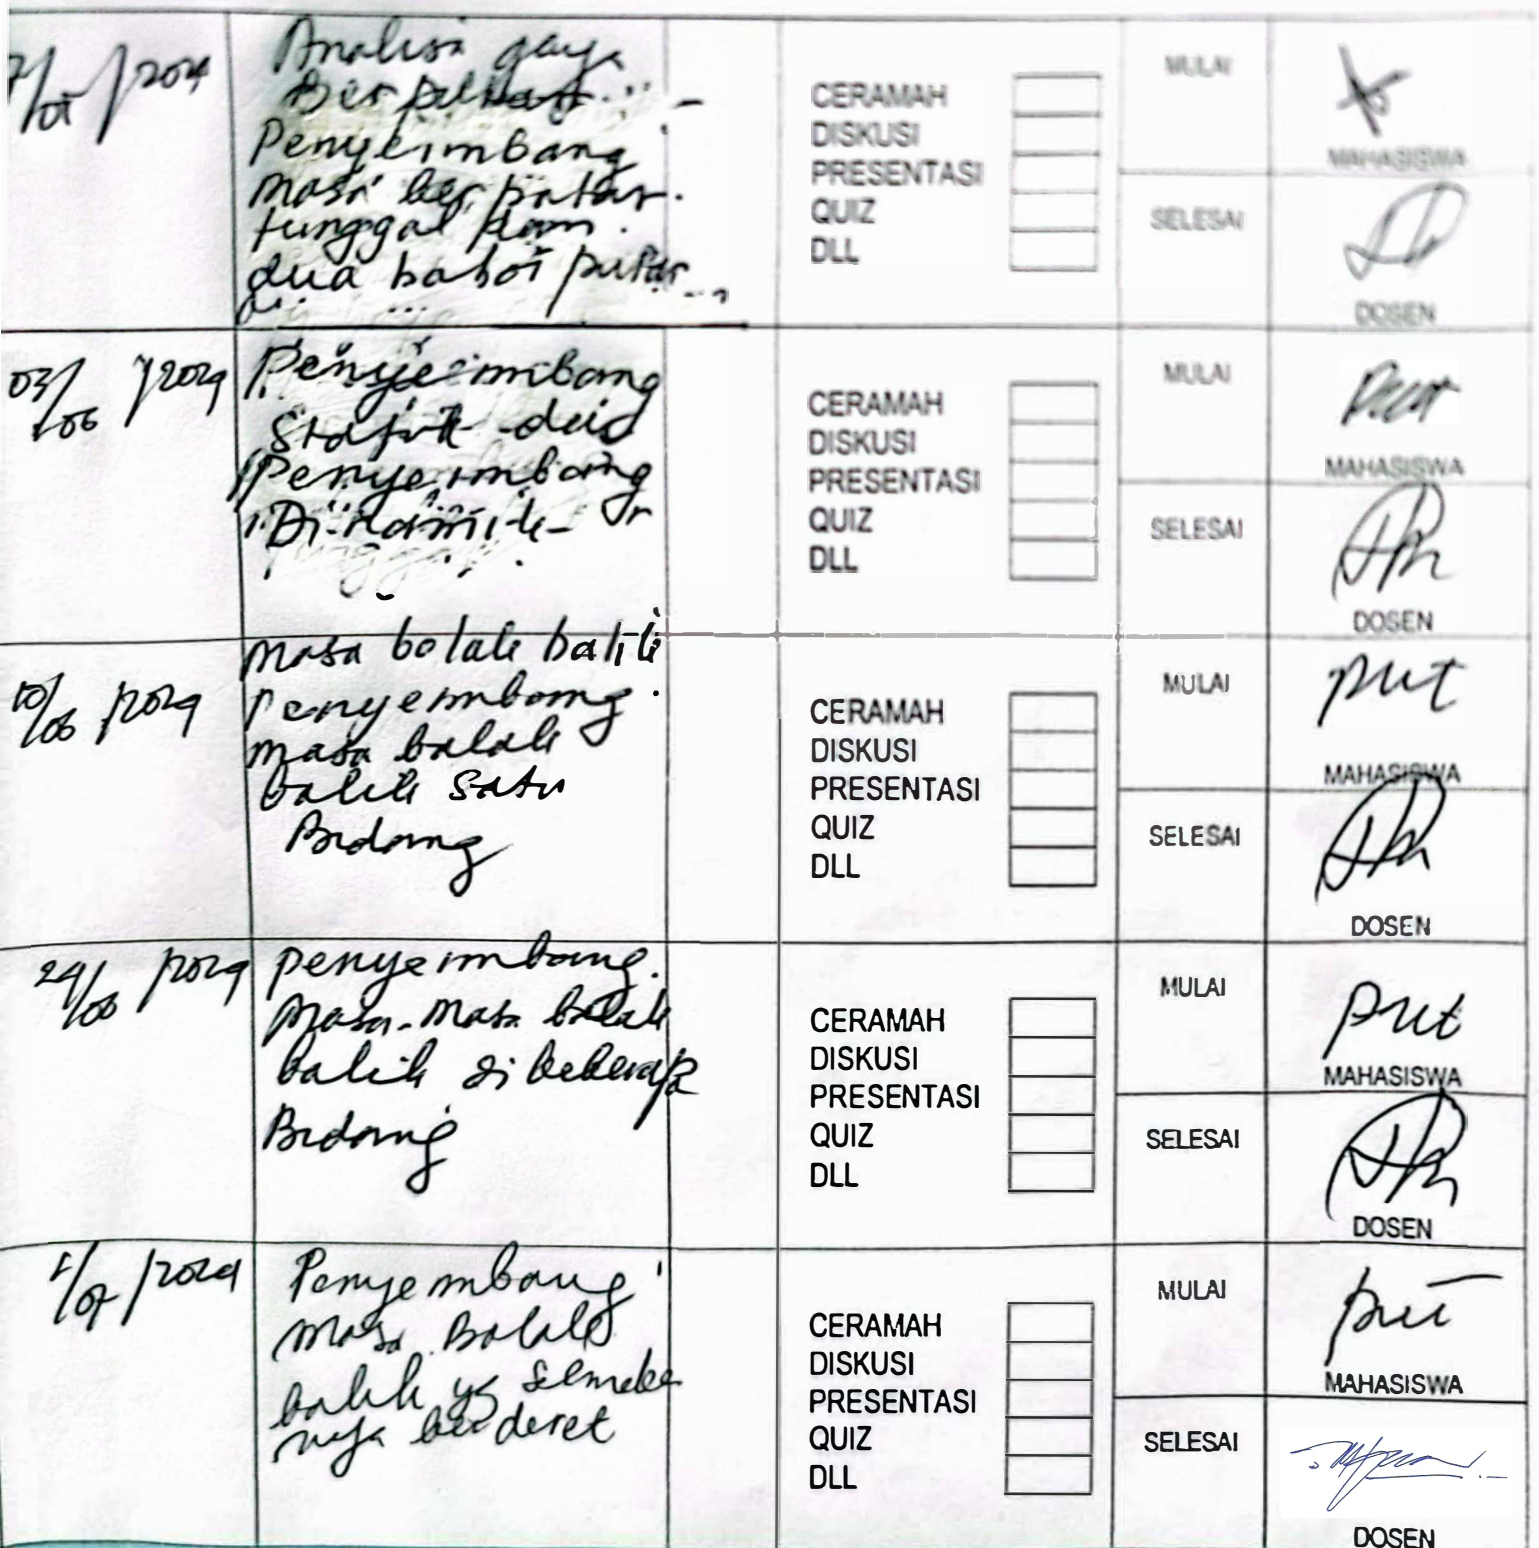 /2024
Analisa gaya
Penyeimbang
masa berputar
tunggal
dua bobot putar
CERAMAH
DISKUSI
PRESENTASI
QUIZ
DLL
MULAI
MAHASISWA
SELESAI
DOSEN
03/06 /2024
Penyeimbang
Statik dan
Penyeimbang
Dinamik
CERAMAH
DISKUSI
PRESENTASI
QUIZ
DLL
MULAI
MAHASISWA
SELESAI
DOSEN
10/06 /2024
masa bolak balik
Penyembang
masa bolak
balik satu
Bidang
CERAMAH
DISKUSI
PRESENTASI
QUIZ
DLL
MULAI
put
MAHASISWA
SELESAI
DOSEN
24/06 /2024
penyeimbang
masa-masa bolak
balik di beberapa
Bidang
CERAMAH
DISKUSI
PRESENTASI
QUIZ
DLL
MULAI
put
MAHASISWA
SELESAI
DOSEN
1/07 /2024
Penyembang
masa Bolak
balik yg
nya berderet
CERAMAH
DISKUSI
PRESENTASI
QUIZ
DLL
MULAI
MAHASISWA
SELESAI
DOSEN